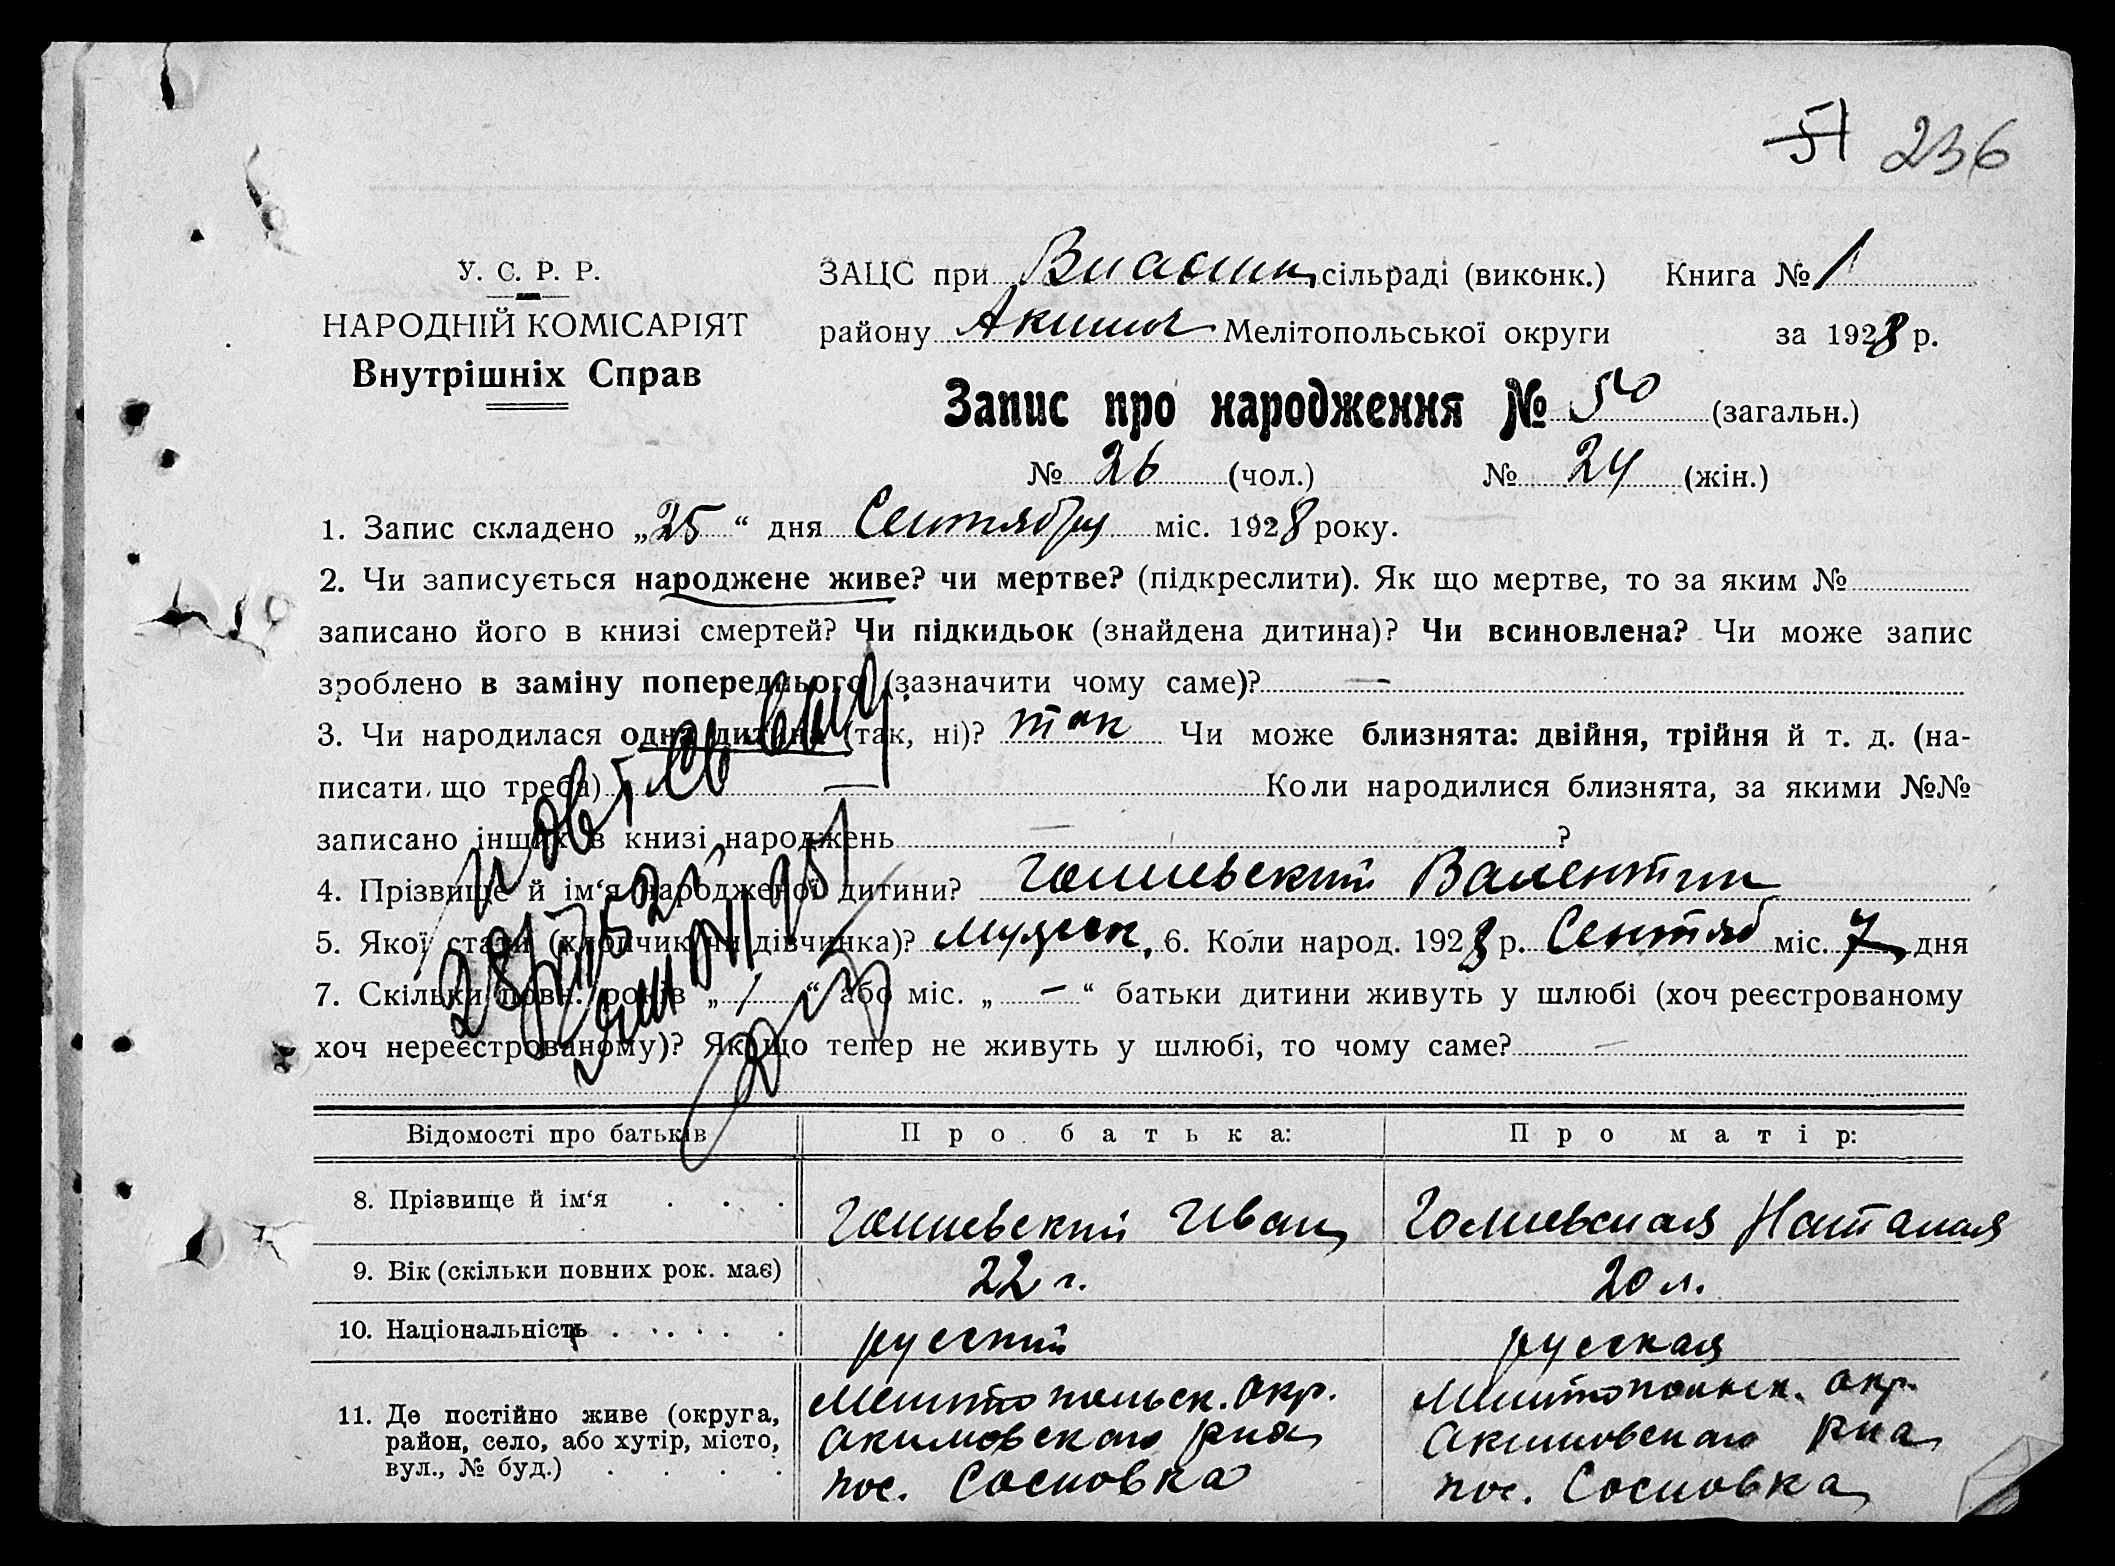 51 236
У. С. Р. Р.
НАРОДНІЙ КОМІСАРІЯТ
Внутрішніх Справ
ЗАЦС при сільраді (виконк.) Книга № 1
району Аким Мелітопольської округи за 1928 р.
Запис про народження № 50 (загальн.)
№ 26 (чол.) № 24 (жін.)
1. Запис складено „25“ дня Сентября міс. 1928 року.
2. Чи записується народжене живе? чи мертве? (підкреслити). Як що мертве, то за яким №
записано його в книзі смертей? Чи підкидьок (знайдена дитина)? Чи всиновлена? Чи може запис
зроблено в заміну попереднього (зазначити чому саме)? —
3. Чи народилася одна дитина (так, ні)? так Чи може близнята: двійня, трійня й т. д. (на-
писати що треба) — Коли народилися близнята, за якими №№
записано інших в книзі народжень — ?
4. Прізвище й ім‘я народженої дитини? Голиевский Валентин
5. Якої стати (хлопчик чи дівчинка)? мужск. 6. Коли народ. 1928 р. Сентяб міс. 7 дня
7. Скільки повн. років „1“ або міс. „—“ батьки дитини живуть у шлюбі (хоч реєстрованому
хоч нереєстрованому)? Як що тепер не живуть у шлюбі, то чому саме? —
Відомості про батьків Про батька: Про матір:
8. Прізвище й ім‘я . . . Голиевский Иван Голиевская Наталия
9. Вік (скільки повних рок. має) 22 г. 20 л.
10. Національність . . . . . . русский русская
11. Де постійно живе (округа, район, село, або хутір, місто, вул., № буд.) . . . .
Мелитопольск. окр.
Акимовского р-на
пос. Сосновка
Мелитопольск. окр.
Акимовского р-на
пос. Сосновка